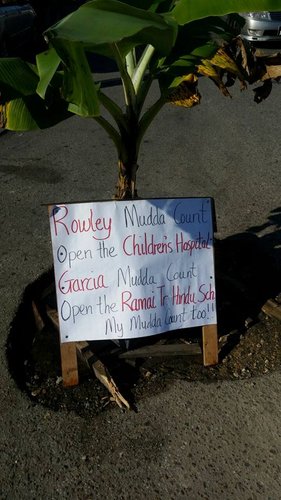 Rowley Mudda Count
Open the Children's Hospital!
Garcia Mudda Count
Open the Ramai Tr Hindu Sch
My Mudda Count too!!